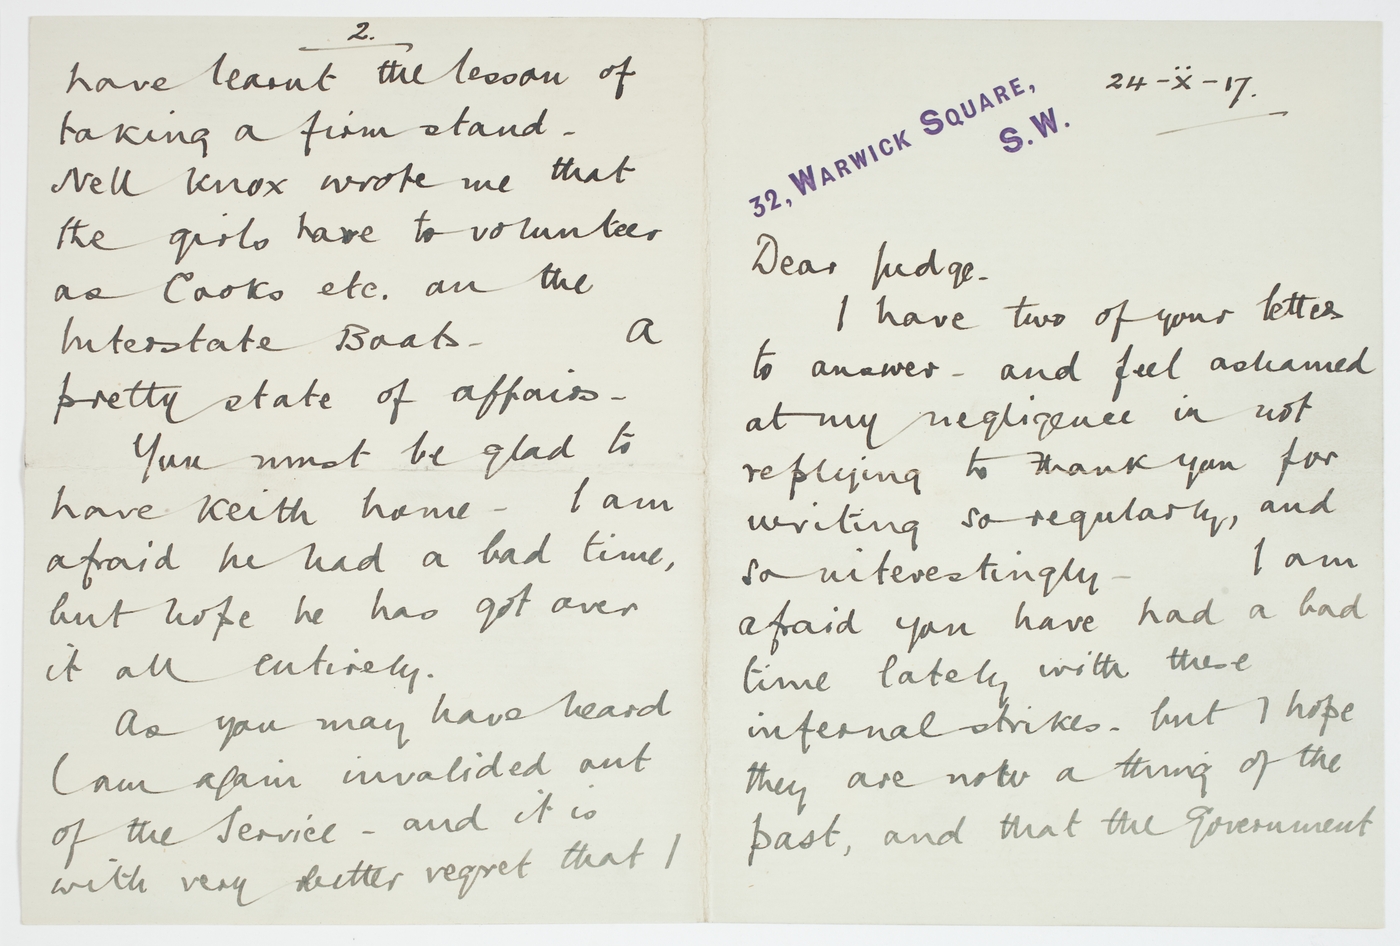 32, WARWICK SQUARE,
S.W.
24-Ẍ-17.
Dear Judge-
I have two of your letters
to answer - and feel ashamed
at my negligence in not
replying to thank you for
writing so regularly, and
so interestingly- I am
afraid you have had a bad
time lately with these
infernal strikes- but I hope
they are now a thing of the
past, and that the Government
2.
have learnt the lesson of
taking a firm stand-
Nell Knox wrote me that
the girls have to volunteer
as Cooks etc. on the
Interstate Boats- A
pretty state of affairs-
You must be glad to
have Keith home- I am
afraid he had a bad time,
but hope he has got over
it all entirely.
As you may have heard
I am again invalided out
of the Service - and it is
with very bitter regret that I